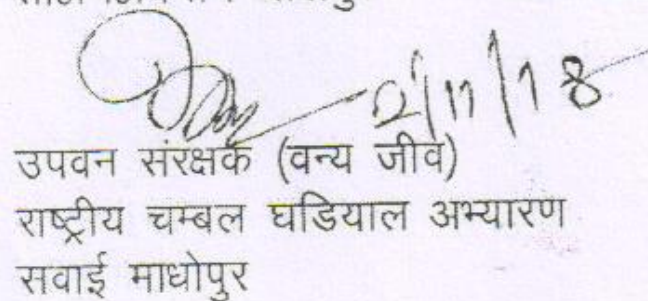 2/11/18
उपवन संरक्षक (वन्य जीव)
राष्ट्रीय चम्बल घडियाल अभ्यारण
सवाई माधोपुर